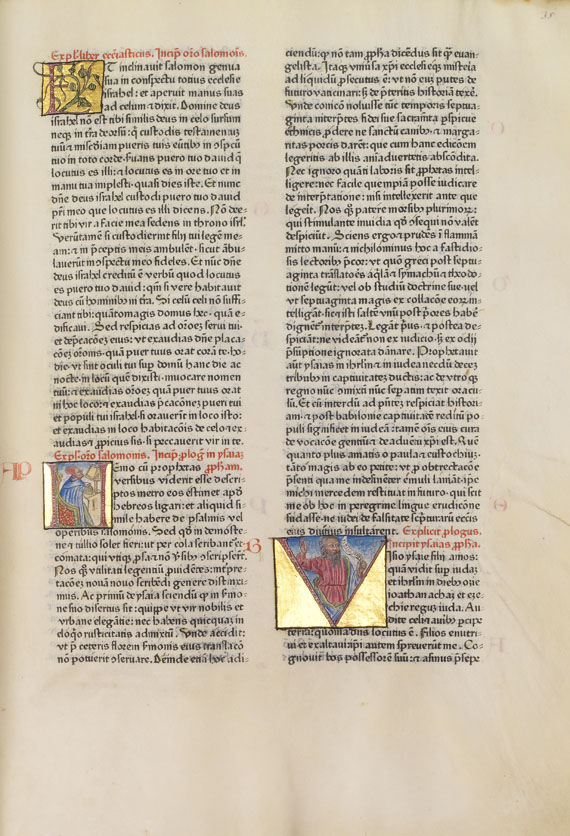 Expl. liber ecclesiasticus. Incip̄ orō salomōis.
ET inclinauit salomon genua
sua in conspectu totius ecclesie
israhel: et aperuit manus suas
ad celum ⁊ dixit. Domine deus
israhel nō est tibi similis deus in celo sursum
neqꝫ in tr̄a deorsū: qͥ custodis testamentū
tuū ⁊ mīam pueris tuis
tuo in toto corde: puero tuo dauid qͥ
locutus es illi: ⁊ locutus es in ore tuo et in
manu tua implesti: quasi dies iste. Et nunc
dn̄e deus israhel custodi puero tuo dauid
pr̄i meo que locutus es illi dicens. Nō dee-
rit tibi vir a facie mea sedens in throno isrl̄.
Verūtamē si custodierint filij tui legē me-
am: ⁊ in p̄ceptis meis ambulēt: sicut ābu-
lauerūt in ꝯspectu meo fideles. Et nūc dn̄e
deus israhel creditū ē verbū quod locutus
es puero tuo dauid: qn̄ si vere habitauit
deus cū hominibꝰ in tr̄a. Si celū celi nō suffi-
ciant tibi: quātomagis domus hec quā e-
dificaui. Sed respicias ad orōeꝫ serui tui
et dep̄cacōeꝫ eius: vt exaudias dn̄e placa-
cōeꝫ orōnis quā puer tuus orat corā te ho-
die: vt sint oculi tui sup̄ domū hanc die ac
nocte: in locū quē dixisti inuocare nomen
tuū: ⁊ exaudias orōeꝫ quā puer tuus orat
in hoc loco: ⁊ exaudias p̄cacōneꝫ pueri tui
et populi tui israhel: si orauerīt in loco isto:
et exaudias in loco habitacōis de celo: ⁊ ex-
audias ⁊ ꝓpicius sis: si peccauerit vir in te.
Expl. orō salomonis. Incip̄ plog̓ in ysaiaꝫ
NEmo cū prophetas ꝓph̄am.
versibus viderit esse descri-
ptos metro eos estimet apd̓
hebreos ligari: et aliquid si-
mile habere de psalmis vel
operibus salomonis. Sed qd̓ in demoste-
ne ⁊ tullio solet fieri: vt per cola scribant̄ ⁊
comata: qui vtiqꝫ ꝓsa ⁊ nō ṽsibꝰ ꝯscripserūt.
Nos qͦꝫ vtilitati legentiū ꝓuidētes: int̓pre-
tacōeꝫ nouā nouo scribēdi genere distinxi-
mus. Ac primū de ysaia sciendū qͥ in ẜmo-
ne suo disertus sit: quippe vt vir nobilis et
vrbane elegātie: nec habens quicqͣꝫ in
eloqͥo rusticitatis admixtū. Vnde accidit:
vt p̄ ceteris florem ẜmonis eius translacō
nō potuerit ꝯseruare. Deinde etiā hoc adi-
ciendū: qͥ nō tam ꝓph̄a dicēdus sit qͣꝫ euan-
gelista. Itaqꝫ vniūsa xp̄i ecclesieqꝫ misteria
ad liquidū ꝓsecutus ē: vt nō eū putes de
futuro vaticinari: ꝫ de p̄teritis historiā texe.
Vnde coniicio noluisse tūc temporis septua-
ginta int̓p̄tes fidei sue sacramta ꝑspicue
ethnicis ꝓdere: ne sanctū canibꝰ ⁊ marga-
ritas porcis darēt: que cum hanc edicōem
legeritis ab illis aīaduertetis abscōdita.
Nec ignoro quāti laboris sit ꝓphetas intelli-
gere: nec facile quempiā posse iudicare
de interp̄tatione: nisi intellexerit ante que
legerit. Nos qͦꝫ patere morsibꝰ plurimoꝝ:
qui stimulante inuidia qd̓ ꝯsequi nō valēt
despiciūt. Sciens ergo ⁊ prudēs ī flammā
mitto manū: ⁊ nichilominus hoc a fastidio-
sis lectoribꝰ p̄cor: vt quō greci post septu-
aginta trāslatōes aqͥlā ⁊ symachū ⁊ theodo-
tionē legūt: vel ob studiū doctrine sue: vel
vt septuaginta magis ex collacōe eoꝝ in-
telligāt: sic ⁊ isti saltē vnū post p̄ores habē
dignēt int̓preteꝫ. Legāt p̄us: ⁊ postea de-
spiciāt: ne videāt̄ nō ex iudicio: ꝫ ex odij
p̄sūptione ignorata dānare. Prophetauit
aūt ysaias in ihrlm̄ ⁊ in iudea necdū deceꝫ
tribubꝰ in captiuitateꝫ ductis: ac de vtroqꝫ
regno nūc ꝯmixtū nūc sep̄atim texit oracu-
lū. Et cū interdū ad p̄ntē respiciat histori-
am: ⁊ post babilonie captiuitatē reditū po-
puli significet in iudeā: tamē oīs eius cura
de vocacōe gentiū ⁊ de aduētu xp̄i est. Quē
quanto plus amatis o paula ⁊ eustochiū:
tāto magis ab eo petite: vt ꝓ obtrectacōe
p̄senti qua me indefinēter emuli laniāt: ip̄e
michi mercedem restituat in futuro: qui scit
me ob hoc in peregrine lingue erudicōe
sudasse: ne iudei de falsitate scripturaꝝ eccīis
eius diutius insultarent. Explicit ꝓlogus.
Incipit ysaias ꝓph̄a.
VIsio ysaie filij amos:
quā vidit sup̄ iudaꝫ
et ihrlm̄ in diebꝰ ozie
ioathan achaꝫ et eze-
chie regū iuda. Au-
dite celi ⁊ auribꝰ ꝑcipe
terra: quoniā dn̄s locutus ē. Filios enutri-
ui et exaltaui: ip̄i autem spreuerūt me. Co-
gnouit bos possessorē suū: ⁊ asinus p̄sepe